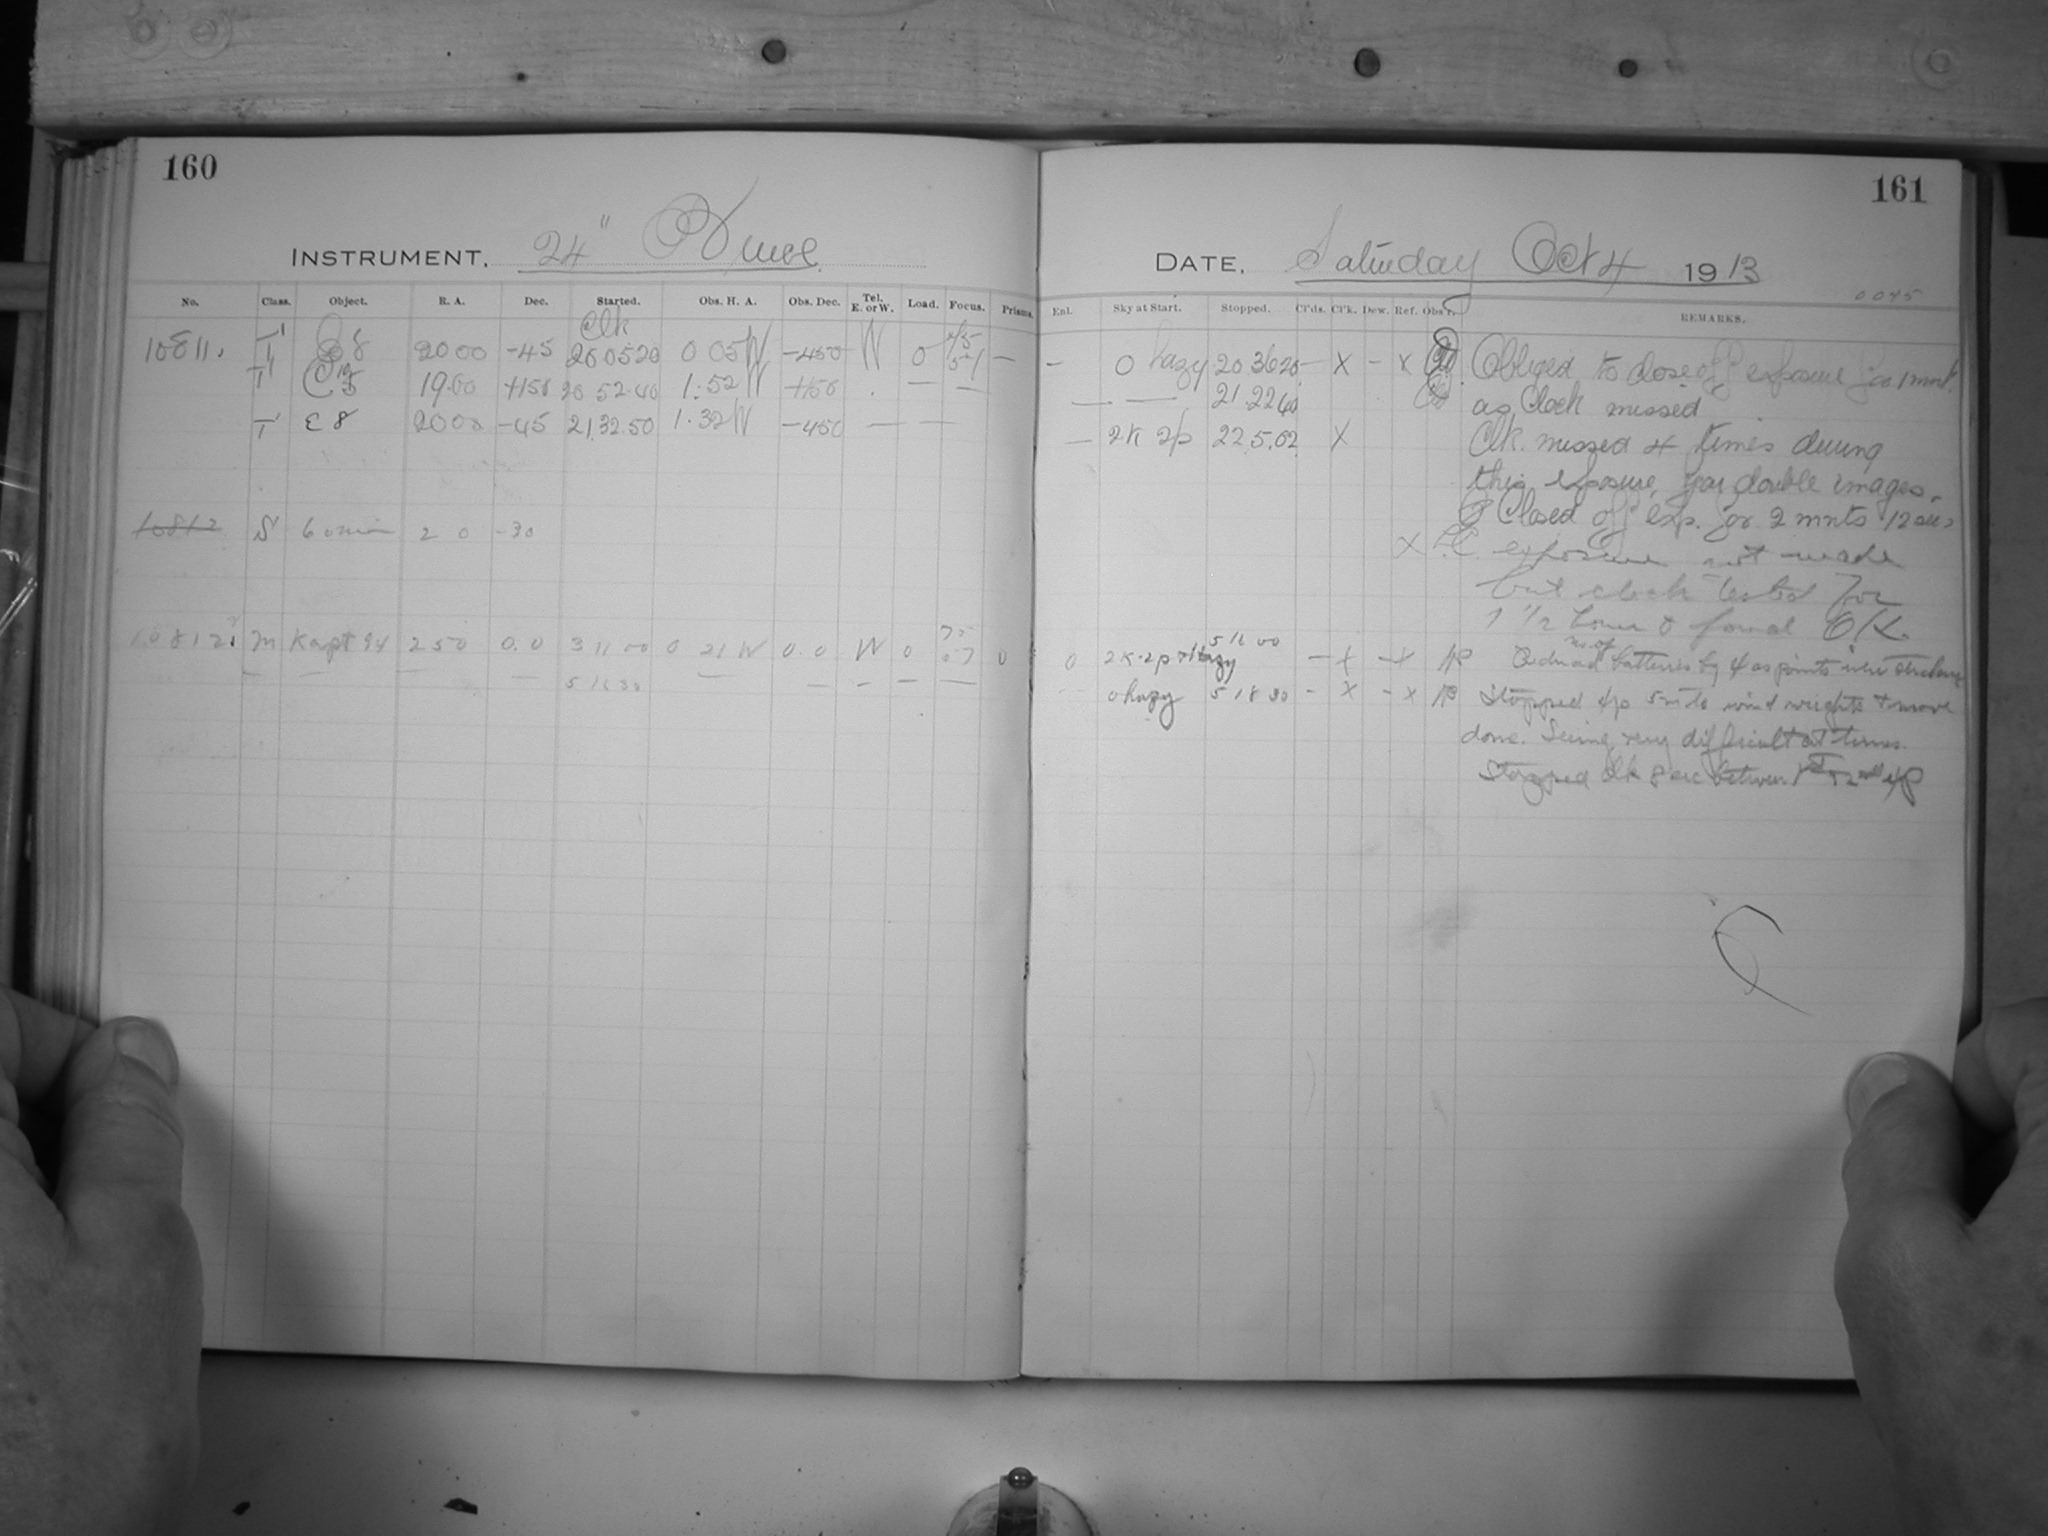 160
INSTRUMENT. 24" Bruce
No. Class. Object. R. A. Dec. Started. Obs. H. A. Obs. Dec. Tel. E. or W. Load. Focus. Prisms.
Clk
10811. T' E 8 20 00 -45 20 05 20 0 05 W -450 W 0 —
T' C 19.00 +15 0 20 52.40 1.52 W +150 — —
T' E 8 20 00 -45 21.32.50 1.32 W -450 — —
10812 S 60 min 2 0 -30
10812. M Kapt 94 2 50 0.0 3 11 00 0 21 W 0.0 W 0 0
— — — — 5 16 30 — — — — —
161
DATE. Saturday Oct 4 1913
0045
Enl. Sky at Start. Stopped. Cl'ds. Cl'k. Dew. Ref. Obs'r. REMARKS.
- 0 hazy 20 36 20 - X - X Obliged to close off exposure for 1 mnt
— — 21.22 40 as Clock missed
— 2K 2p 22 5.02 X Clk. missed 4 times during
this exposure, for double images.
Closed off exp. for 2 mnts 12 secs
X exposure not made
but clock tested for
1 1/2 hours & found OK.
5 11 00
0 2K-2p + Hazy - X - X batteries by 4 as points were
0 hazy 5 18 30 - X - X Stopped xp 5m to wind weights & move
dome. Seeing very difficult at times.
Stopped clk 8 sec between 1st & 2nd xp